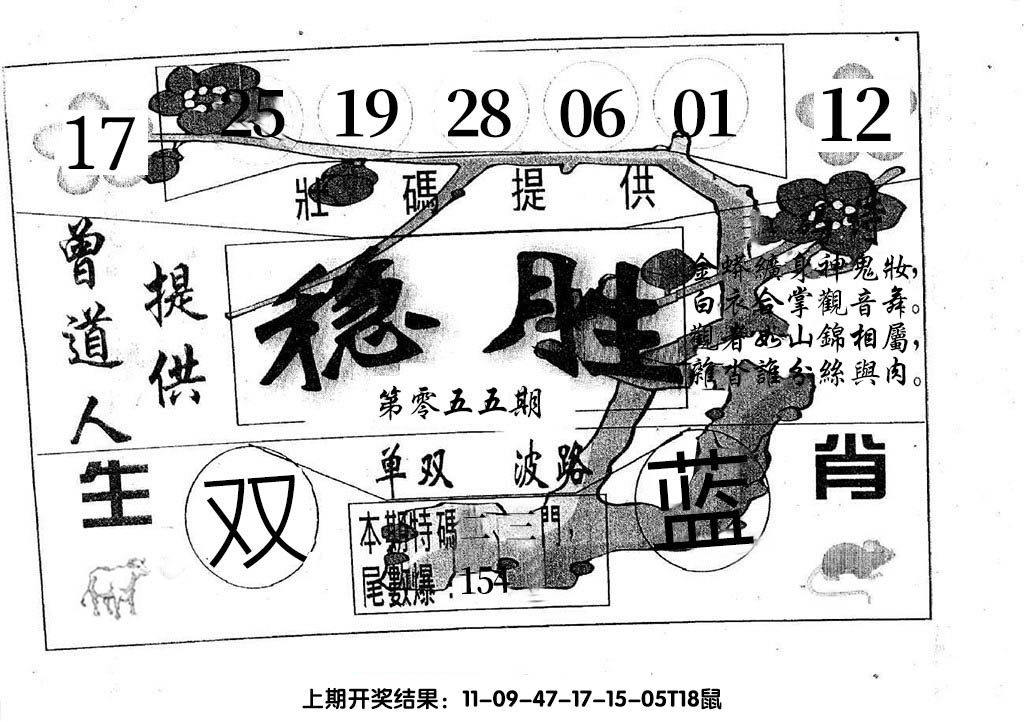 17 25 19 28 06 01 12
壯碼提供
曾道人
提供
特
稳胜
金蟒纏身神鬼妝,
白衣合掌觀音舞。
觀者如山錦相屬,
雜沓誰分絲與肉。
第零五五期
单双 波路
生肖
双
蓝
本期特碼二、三門,
尾數爆:154
上期开奖结果：11-09-47-17-15-05T18鼠